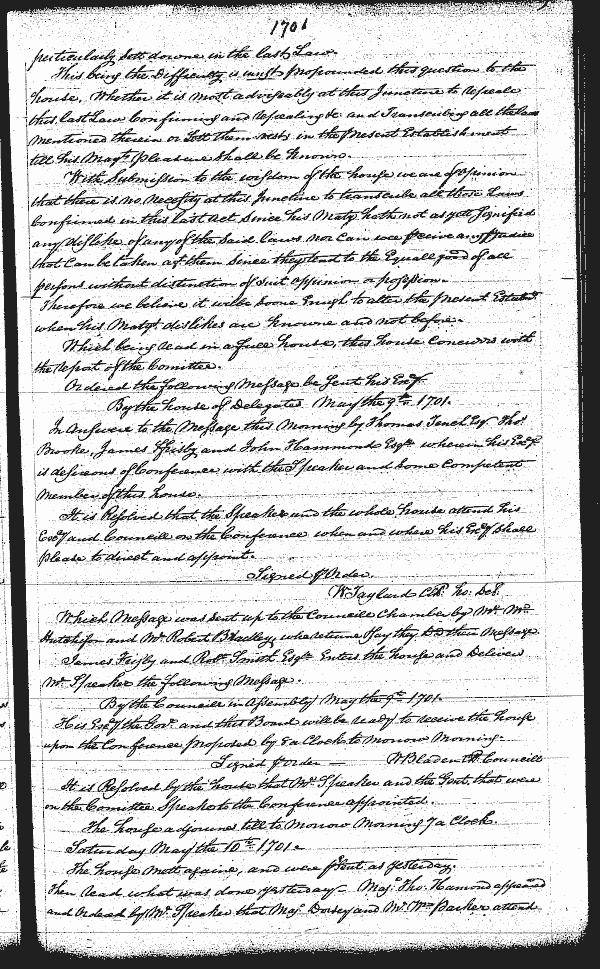 1701
perticularly sett downe in the last Law.
This being the Difficulty is must propounded this question to the
house. Whether it is most adviseably at this Juncture to Repeale
this last Law Confirming and Repealing &c and Transcribing all the laws
mentioned therein or Lett them rest in the present Establishment
till his Majty pleasure shall be knowne.
With Submission to the wisdom of the house we are of opinion
that there is no necessity at this Juncture to transcribe all those Laws
Confirmed in this last Act since his Maty hath not as yett signified
any dislike of any of the said laws nor can wee pceive any pjudice
that can be taken agt them since they tend to the Equall good of all
persons without distinction of opinion or profession.
Therefore we believe it will be soone Enough to alter the present Establt
when his Matys dislikes are knowne and not before.
Which being read in a full house, this house Concurrs with
the report of the Comittee.
Ordered the following Message be sent his Exy
By the house of Delegates May the 9th 1701.
In Answere to the Message this Morning by Thomas Tench Esq Tho:
Brooke, James Frisby and John Hammond Esqrs wherein his Exy
is desirous of Conference with the Speaker and some Competent
member of this house.
It is Resolved that the Speaker and the whole house attend his
Exy and Councill on the Conference when and where his Exy shall
please to direct and appoint.
Signed p Order.
W Taylard Clk Ho: Del.
Which Message was sent up to the Councill Chamber by Mr Wm
Hutchison and Mr Robert Bradley, who returne Say they Dd their Message.
James Frisby and Robt Smith Esqrs Enters the house and Delivers
Mr Speaker the following Message.
By the Councill in Assembly May the 9th 1701.
His Exy the Govr and this Board will be ready to receive the house
upon the Conference proposed by 8 a Clock to Morrow Morning.
Signed p Order — W Bladen Cl Councill
It is Resolved by the house that Mr Speaker and the Gent. that were
on the Comittee Speake to the Conference appointed.
The house adjourns till to Morrow Morning 7 a Clock.
Saturday May the 10th 1701.
The house mett againe, and were psent as yesterday.
Then read what was done yesterday — Majr Tho: Hamond appeared
and Ordered by Mr Speaker that Majr Dorsey and Mr Wm Barker attend